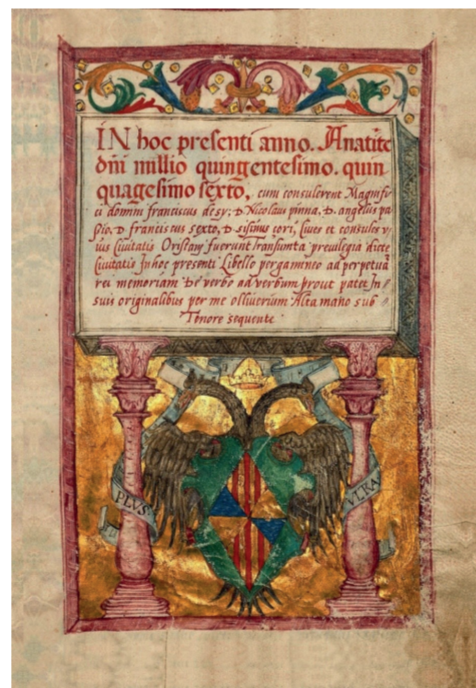 IN hoc presenti anno. Anatite
dñi millio quingentesimo. quin
quagesimo sexto, cum consulerent Magnifi
ci domini franciscus desy; D Nicolaus pinna. D. angelus pa
pio. D franciscus sexto, D sisinus cori, Cives et consules
ius Civitatis Oristany fuerunt Transumta previlegia dicte
Civitatis Inhoc presenti Libello pergamineo ad perpetuā
rei memoriam De verbo ad verbum prout patet In
suis originalibus per me olliverium Alta mano sub
Tenore sequente.
PLVS VLRA